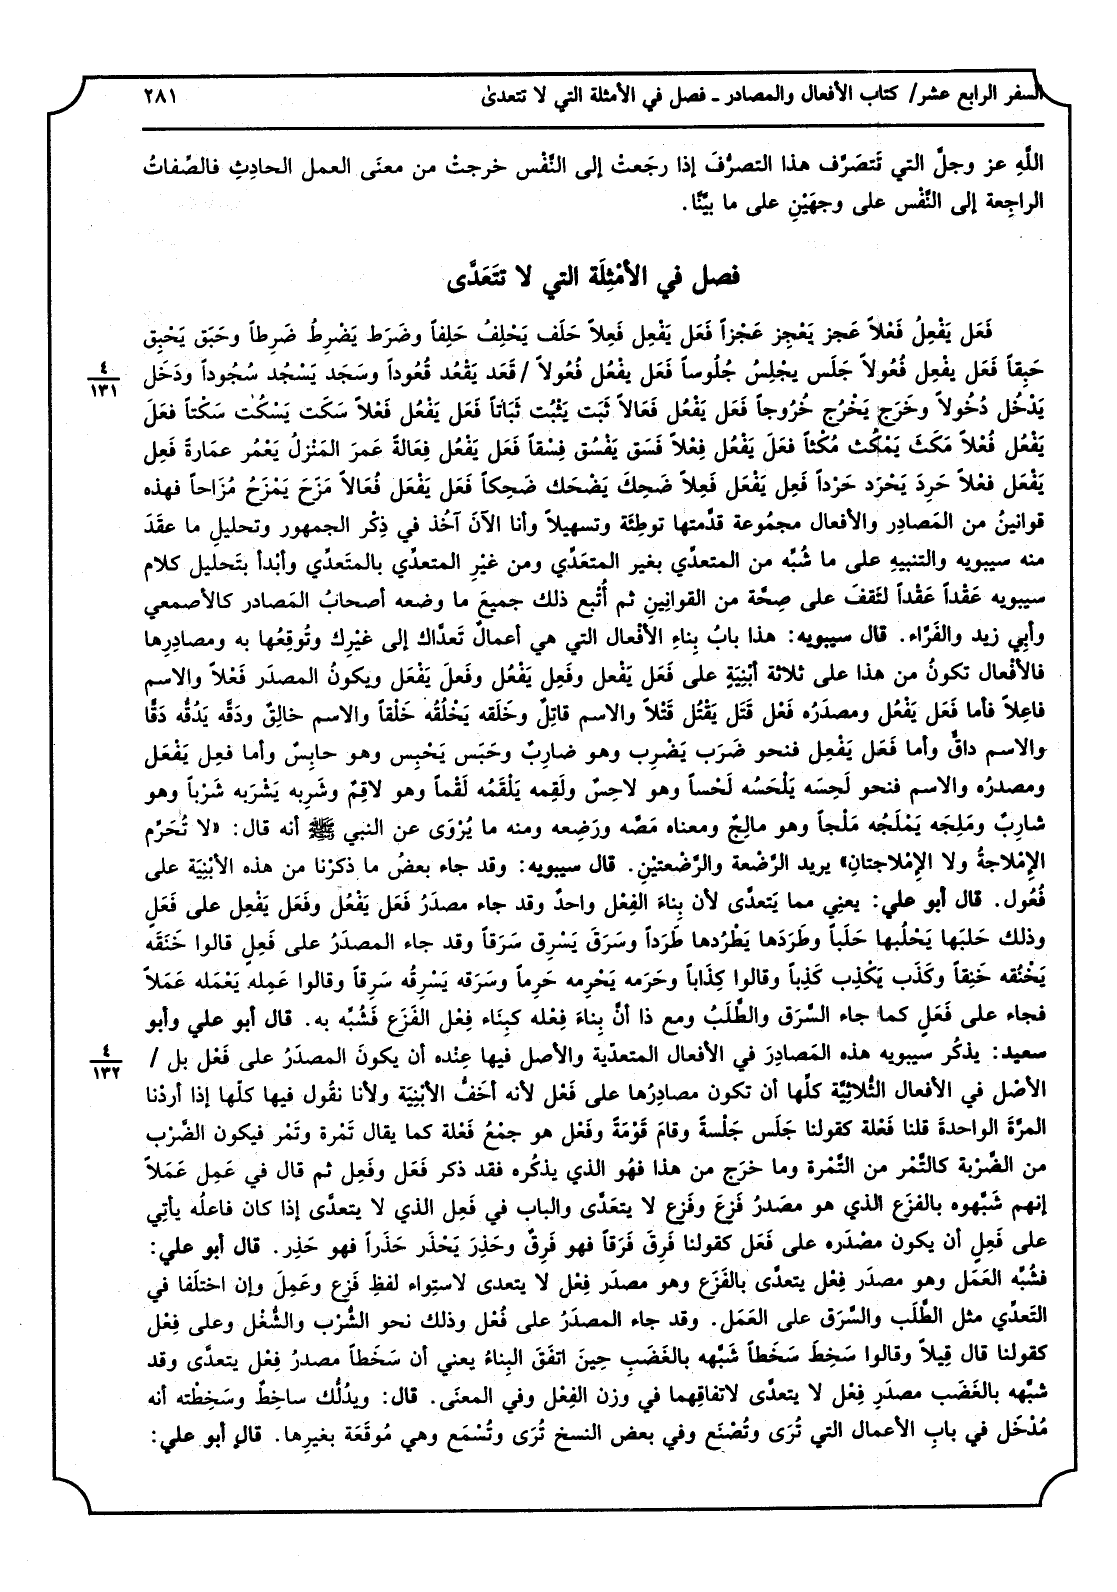 السفر الرابع عشر/ كتاب الأفعال والمصادر ـ فصل في الأمثلة التي لا تتعدىٰ ٢٨١
اللَّهِ عز وجلَّ التي تَتصَرَّف هذا التصرُّفَ إذا رجَعتْ إلى النَّفْس خرجتْ من معنَى العمل الحادِثِ فالصِّفاتُ
الراجِعة إلى النَّفْس على وجهَيْنِ على ما بيَّنَّا.
فصل في الأمْثِلَة التي لا تتَعَدَّى
فَعَل يَفْعِلُ فَعْلاً عَجز يَعْجِز عَجْزاً فَعَل يَفْعِل فَعِلاً حَلَف يَحْلِفُ حَلِفاً وضَرَط يَضْرِطُ ضَرِطاً وحَبَق يَحْبِق
حَبِقاً فَعَل يفْعِل فُعُولاً جَلَس يجْلِسُ جُلُوساً فَعَل يفْعُل فُعُولاً / قَعَد يَقْعُد قُعُوداً وسَجَد يَسْجُد سُجُوداً ودَخَل
٤
١٣١
يَدْخُل دُخُولاً وخَرَج يَخْرُج خُرُوجاً فَعَل يَفْعُل فَعَالاً ثَبَت يَثْبُت ثَبَاتاً فَعَل يَفْعُل فَعْلاً سَكَت يَسْكُت سَكْتاً فَعَلَ
يَفْعُل فُعْلاً مَكَثَ يَمْكُث مُكْثاً فعَلَ يَفْعُل فِعْلاً فَسَق يَفْسُق فِسْقاً فَعَل يَفْعُل فِعَالةً عَمرَ المَنْزلُ يَعْمُر عمَارةً فَعِل
يَفْعَل فعْلاً حَرِدَ يَحْرَد حَرْداً فَعِل يَفْعَل فَعِلاً ضَحِكَ يَضْحَك ضَحِكاً فَعَل يَفْعَل فُعَالاً مَزَحَ يَمْزَحُ مُزَاحاً فهذه
قوانينُ من المَصادِر والأفعال مجمُوعة قدَّمتها توطِئَة وتسهيلاً وأنا الآنَ آخُذ في ذِكْر الجمهور وتحليلِ ما عقَدَ
منه سيبويه والتنبيهِ على ما شُبِّه من المتعدِّي بغير المتعَدِّي ومن غيْرِ المتعدِّي بالمتَعدِّي وأبْدأ بتَحليل كلام
سيبويه عَقْداً عَقْداً لتَقفَ على صِحَّة من القوانِينِ ثم أُتْبع ذلك جميعَ ما وضعه أصحابُ المَصادر كالأصمعي
وأبِي زيد والفَرَّاء. قال سيبويه: هذا بابُ بِناءِ الأفْعال التي هي أعمالٌ تَعدَّاك إلى غيْرِك وتُوقِعُها به ومصادِرِها
فالأفْعال تكونُ من هذا على ثلاثة أبْنِيَةٍ على فَعَل يَفْعل وفَعِل يَفْعُل وفَعلَ يَفْعَل ويكونُ المصدَر فَعْلاً والاسم
فاعِلاً فأما فَعَل يَفْعُل ومصدَرُه فَعْل قَتَل يَقْتُل قَتْلاً والاسم قاتِلٌ وخَلَقه يَخْلُقُه خَلْقاً والاسم خالِقٌ ودَقَّه يَدُقُّه دَقًّا
والاسم داقٌّ وأما فَعَل يَفْعِل فنحو ضَرَب يَضْرِب وهو ضارِبٌ وحَبَس يَحْبِس وهو حابِسٌ وأما فعِل يَفْعَل
ومصدرُه والاسم فنحو لَحِسَه يَلْحَسُه لَحْساً وهو لاحِسٌ ولَقِمه يَلْقَمُه لَقْماً وهو لاقِمٌ وشَرِبه يَشْرَبه شَرْباً وهو
شارِبٌ ومَلِجَه يَمْلَجُه مَلْجاً وهو مالِجٌ ومعناه مَصَّه ورَضِعه ومنه ما يُرْوَى عن النبي ﷺ أنه قال: «لا تُحَرِّم
الإمْلاجةُ ولا الإمْلاجتانِ» يريد الرَّضْعة والرَّضْعتيْنِ. قال سيبويه: وقد جاء بعضُ ما ذكرْنا من هذه الأبْنِيَة على
فُعُول. قال أبو علي: يعنِي مما يَتعدَّى لأن بِناءَ الفِعْل واحدٌ وقد جاء مصدَرُ فَعَل يَفْعُل وفَعَل يَفْعِل على فَعَلٍ
وذلك حَلبَها يَحْلُبها حَلَباً وطَرَدَها يَطْرُدها طَرَداً وسَرَقَ يَسْرِق سَرَقاً وقد جاء المصدَرُ على فَعِلٍ قالوا خَنَقَه
يَخْنُقه خَنِقاً وكَذَب يَكْذِب كَذِباً وقالوا كِذَاباً وحَرَمه يَحْرِمه حَرِماً وسَرَقه يَسْرِقُه سَرِقاً وقالوا عَمِله يَعْمَله عَمَلاً
فجاء على فَعَلٍ كما جاء السَّرَق والطَّلَبُ ومع ذا أنَّ بِناءَ فِعْله كبِنَاء فِعْل الفَزَع فَشُبِّه به. قال أبو علي وأبو
سعيد: يذكُر سيبويه هذه المَصادِرَ في الأفعال المتعدِّية والأصل فيها عِنْده أن يكونَ المصدَرُ على فَعْل بل /
٤
١٣٢
الأصْل في الأفعال الثُّلاثِيَّة كلِّها أن تكون مصادِرُها على فَعْل لأنه أخَفُّ الأبْنِيَة ولأنا نقُول فيها كلِّها إذا أردْنا
المرَّةَ الواحدةَ قلنا فَعْلة كقولنا جَلَس جَلْسةً وقامَ قَوْمَةً وفَعْل هو جمْعُ فَعْلة كما يقال تَمْرة وتَمْر فيكون الضَّرْب
من الضَّرْبة كالتَّمْر من التَّمْرة وما خرَج من هذا فهُو الذي يذكُره فقد ذكر فَعَل وفَعِل ثم قال في عَمِل عَمَلاً
إنهم شَبَّهوه بالفزَع الذي هو مصْدَرُ فَزِعَ وفَزِع لا يتعَدَّى والباب في فَعِل الذي لا يتعدَّى إذا كان فاعلُه يأتِي
على فَعِلٍ أن يكون مصْدَره على فَعَل كقولنا فَرِقَ فَرَقاً فهو فَرِقٌ وحَذِرَ يَحْذَر حَذَراً فهو حَذِر. قال أبو علي:
فشُبِّه العَمَل وهو مصدَر فِعْل يتعدَّى بالفَزَع وهو مصدَر فِعْل لا يتعدى لاستِواء لفظِ فَزِع وعَمِلَ وإن اختلَفا في
التَعدِّي مثل الطَّلَب والسَّرَق على العَمَل. وقد جاء المصدَرُ على فُعْل وذلك نحو الشُّرْب والشُّغْل وعلى فِعْل
كقولنا قال قِيلاً وقالوا سَخِطَ سَخَطاً شَبَّهه بالغَضَبِ حِينَ اتفَقَ البِناءُ يعني أن سَخَطاً مصدرُ فِعْل يتعدَّى وقد
شبَّهه بالغَضَب مصدَرِ فِعْل لا يتعدَّى لاتفاقِهما في وزن الفِعْل وفي المعنَى. قال: ويدُلُّك ساخِطٌ وسَخِطْته أنه
مُدْخَل في بابِ الأعمال التي تُرَى وتُصْنَع وفي بعض النسخ تُرَى وتُسْمَع وهي مُوقَعَة بغيرِها. قال أبو علي: